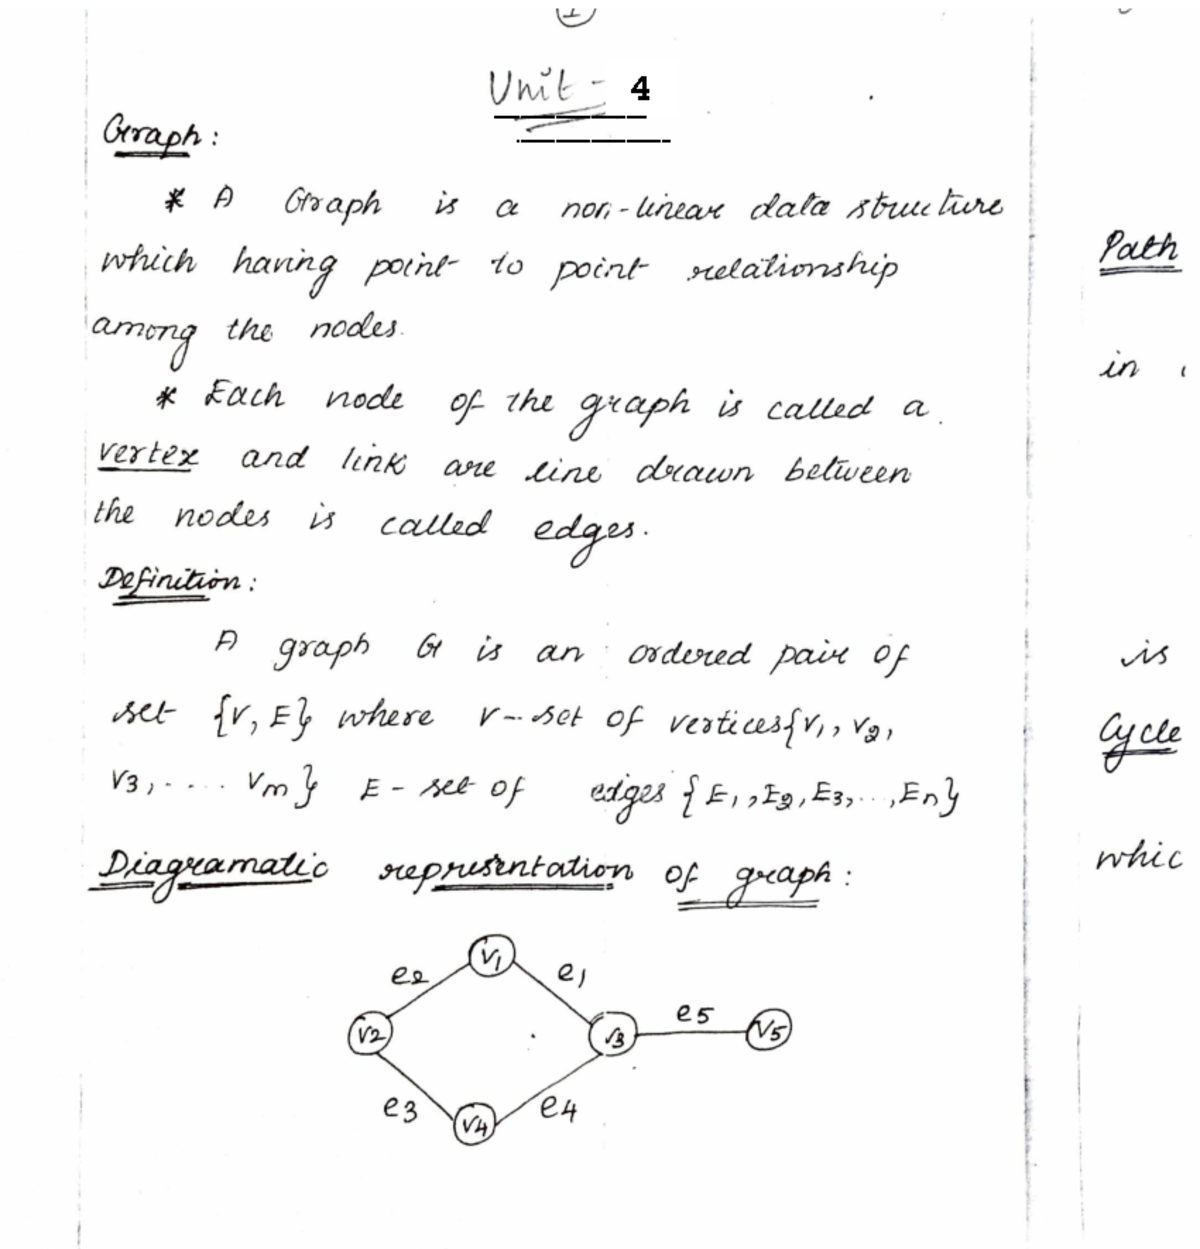 1
Unit - 4
Graph :
* A Graph is a non-linear data structure
which having point to point relationship
among the nodes.
* Each node of the graph is called a
vertex and link are line drawn between
the nodes is called edges.
Definition :
A graph G is an ordered pair of
set {V, E} where V - set of vertices {V1, V2,
V3, .... Vm} E - set of edges {E1, E2, E3, ..., En}
Diagramatic representation of graph :
V1
e2 e1
V2 V3 e5 V5
e3 e4
V4
Path
in
is
Cycle
whic